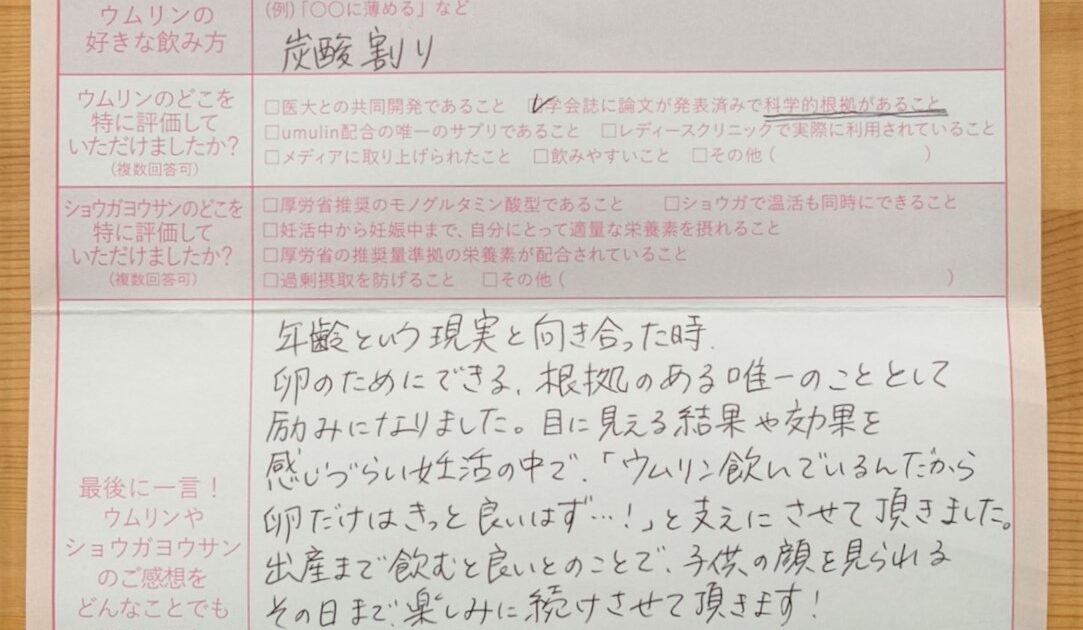 ウムリンの
好きな飲み方
(例)「〇〇に薄める」など
炭酸割り
ウムリンのどこを
特に評価して
いただけましたか?
(複数回答可)
□医大との共同開発であること ☑学会誌に論文が発表済みで科学的根拠があること
□umulin配合の唯一のサプリであること □レディースクリニックで実際に利用されていること
□メディアに取り上げられたこと □飲みやすいこと □その他( )
ショウガヨウサンのどこを
特に評価して
いただけましたか?
(複数回答可)
□厚労省推奨のモノグルタミン酸型であること □ショウガで温活も同時にできること
□妊活中から妊娠中まで、自分にとって適量な栄養素を摂れること
□厚労省の推奨量準拠の栄養素が配合されていること
□過剰摂取を防げること □その他( )
最後に一言!
ウムリンや
ショウガヨウサン
のご感想を
どんなことでも
年齢という現実と向き合った時、
卵のためにできる、根拠のある唯一のこととして
励みになりました。目に見える結果や効果を
感じづらい妊活の中で、「ウムリン飲んでいるんだから
卵だけはきっと良いはず…!」と支えにさせて頂きました。
出産まで飲むと良いとのことで、子供の顔を見られる
その日まで、楽しみに続けさせて頂きます!